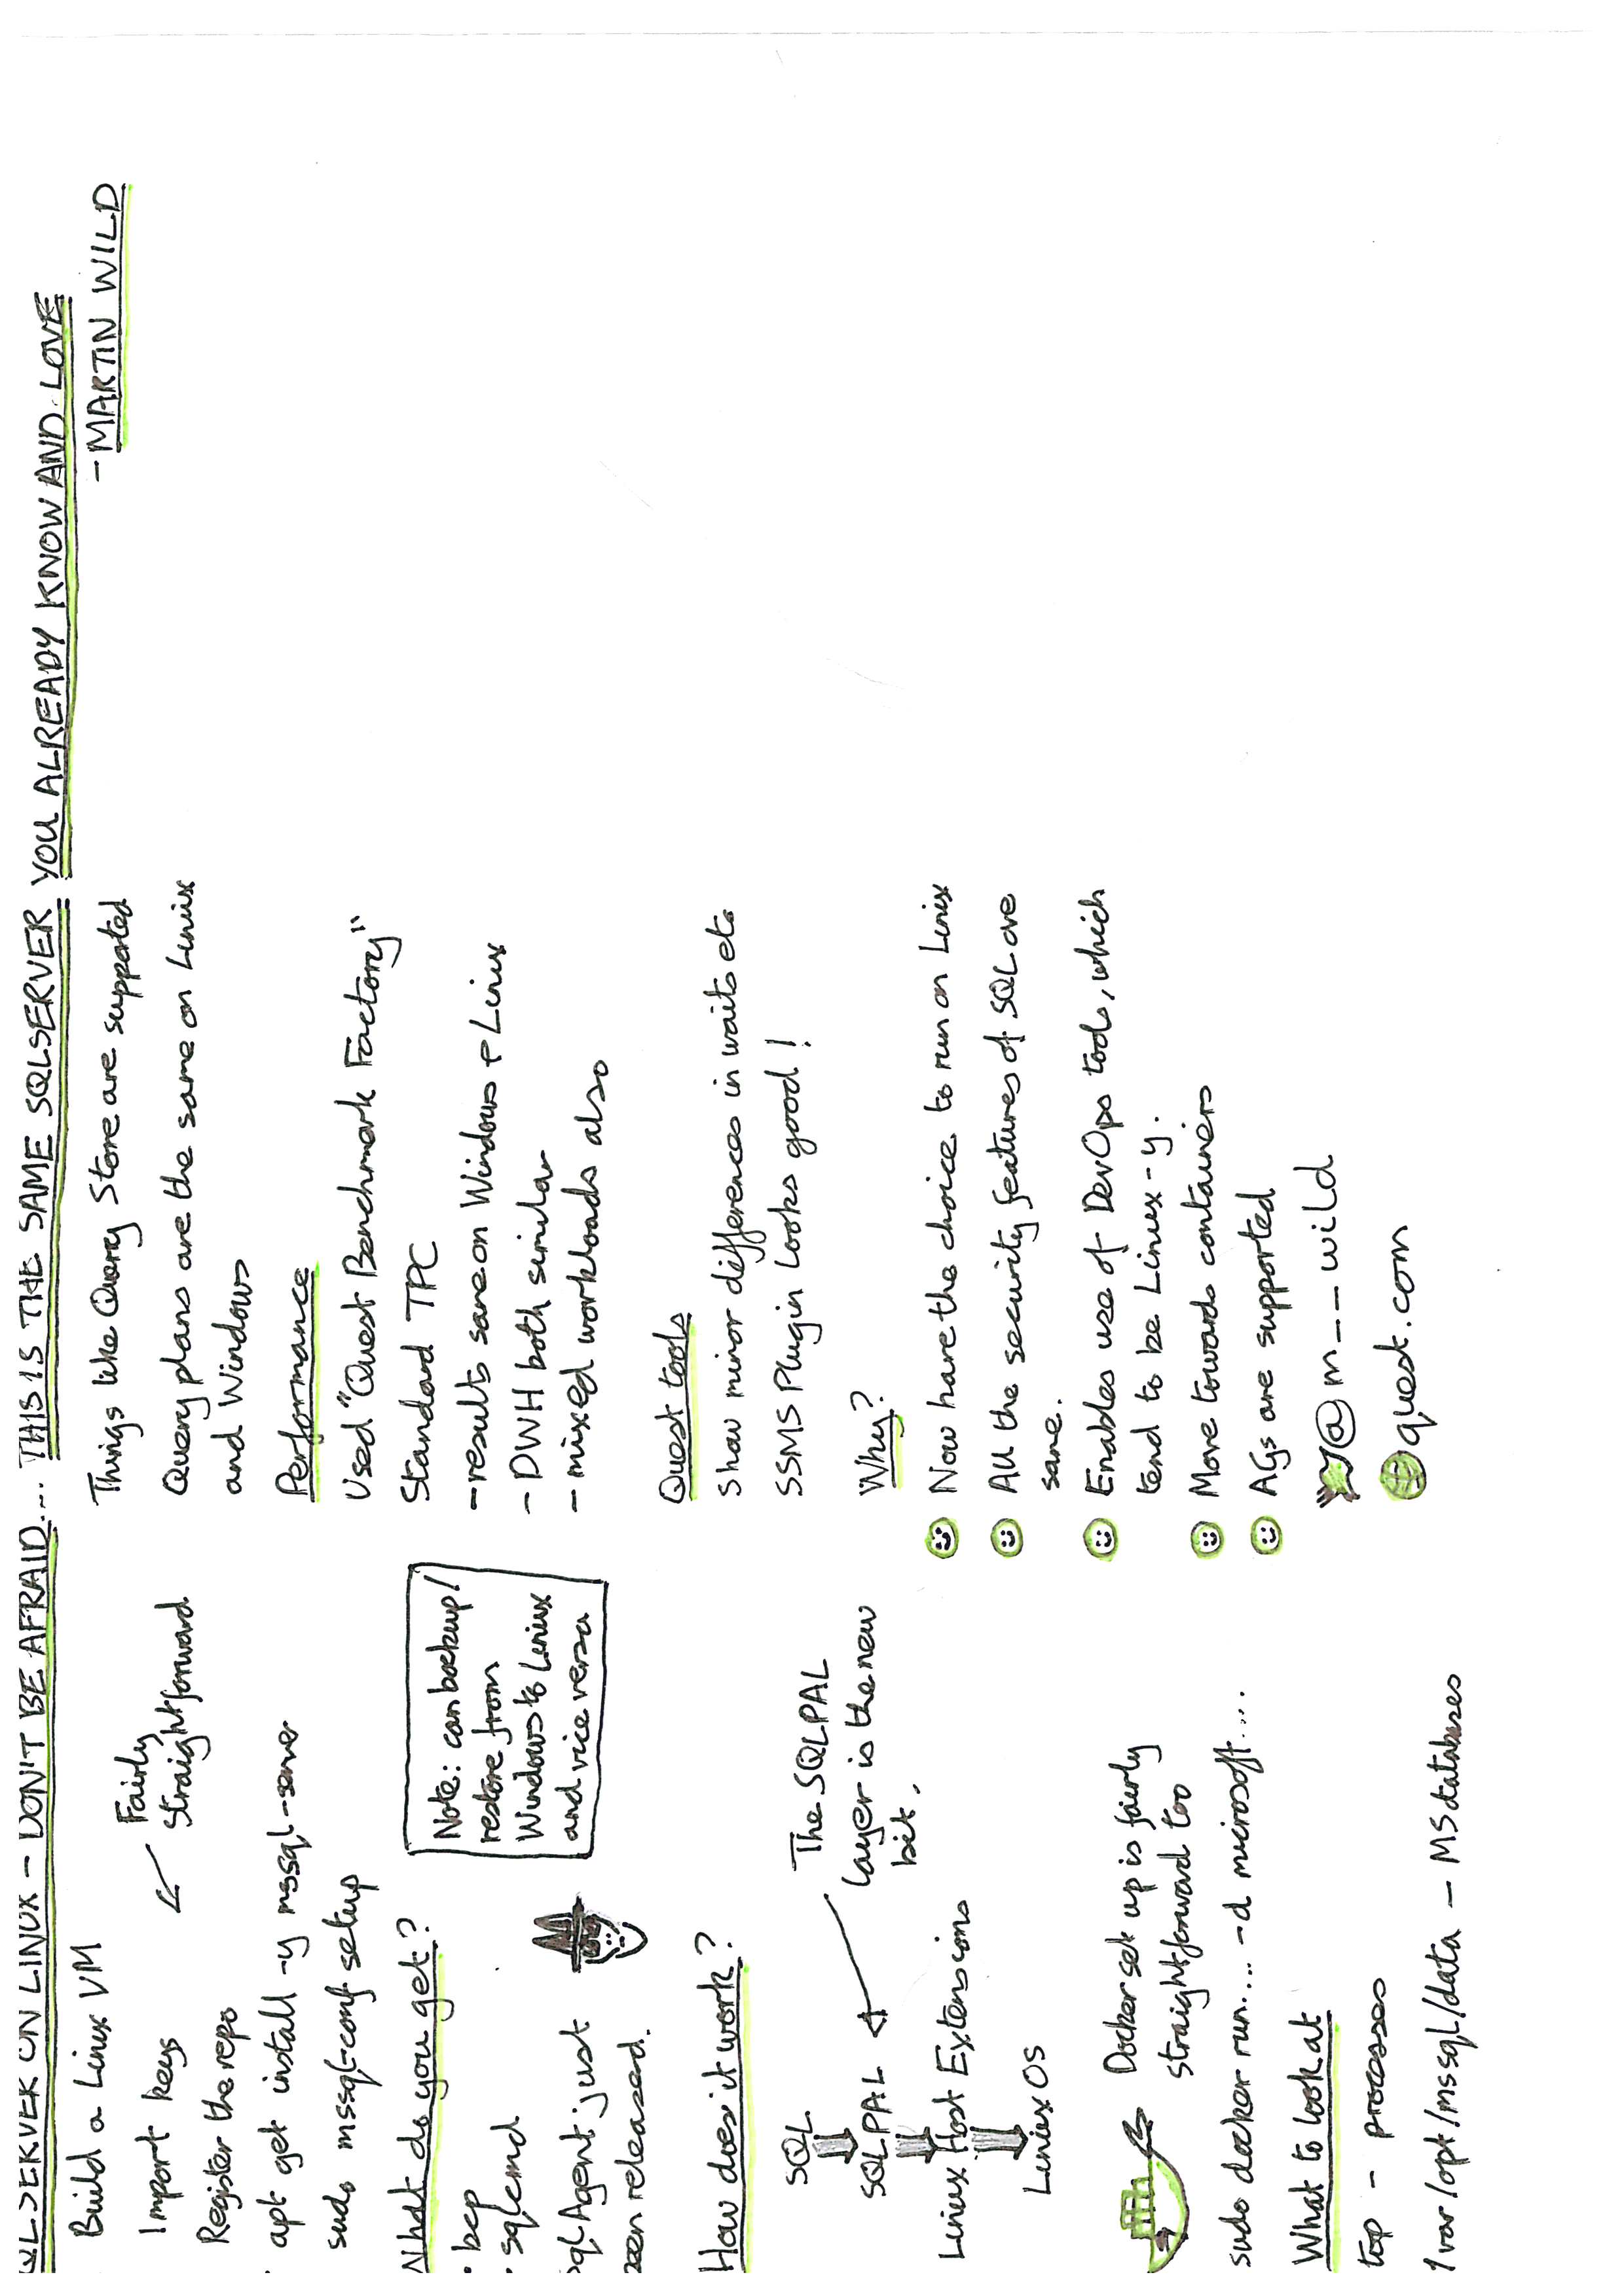 QLSERVER ON LINUX - DON'T BE AFRAID.... THIS IS THE SAME SQLSERVER YOU ALREADY KNOW AND LOVE
- MARTIN WILD
Build a Linux VM
Import keys
Fairly
straightforward
Register the repo
apt get install -y mssql-server
sudo mssql-conf setup
What do you get?
• bcp
• sqlcmd
sql Agent just
been released.
Note: can backup/
restore from
Windows to Linux
and vice versa
How does it work?
SQL
SQLPAL
The SQLPAL
layer is the new
bit.
Linux Host Extensions
Linux OS
Docker set up is fairly
straightforward too
sudo docker run.... -d microsoft....
What to look at
top - processes
/var/opt/mssql/data - MS databases
Things like Query Store are supported
Query plans are the same on Linux
and Windows
Performance
Used "Quest Benchmark Factory"
Standard TPC
- results same on Windows & Linux
- DWH both similar
- mixed workloads also
Quest tools
Show minor differences in waits etc
SSMS Plugin looks good!
Why?
Now have the choice to run on Linux
All the security features of SQL are
same.
Enables use of DevOps tools, which
tend to be Linux-y.
Move towards containers
AGs are supported
@m__wild
quest.com